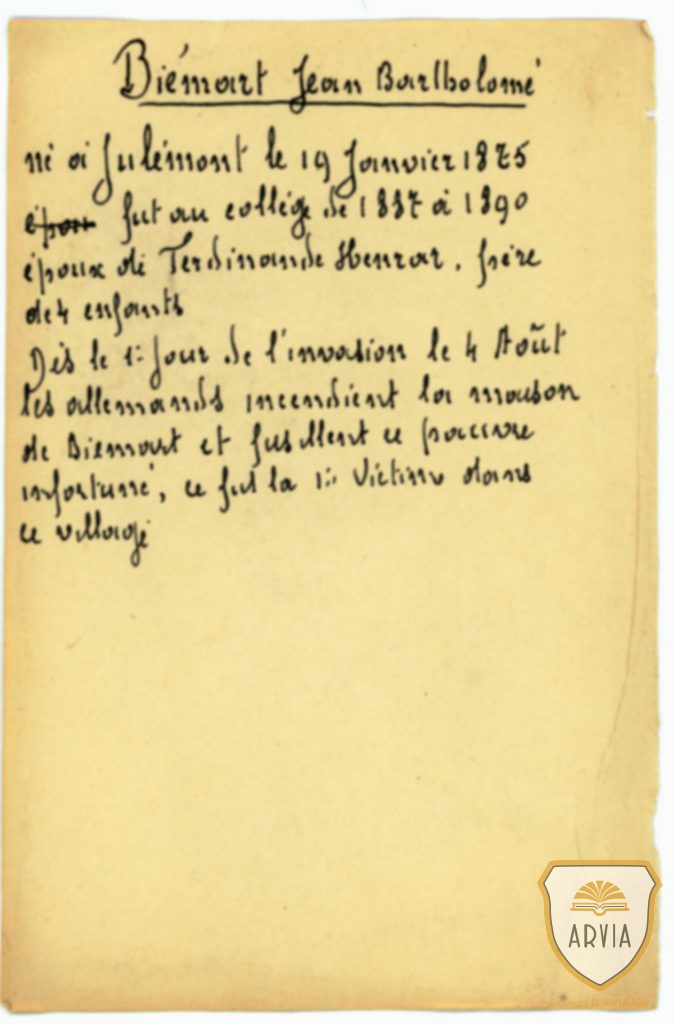 Biémart Jean Bartholomé
né à Julémont le 19 Janvier 1875
époux fut au collège de 1887 à 1890
époux de Ferdinande Henrar, frère
de 4 enfants
Dès le 1er Jour de l'invasion le 4 Août
les allemands incendient la maison
de Biémart et fusillent ce pauvre
infortuné, ce fut la 1re Victime dans
ce village
ARVIA